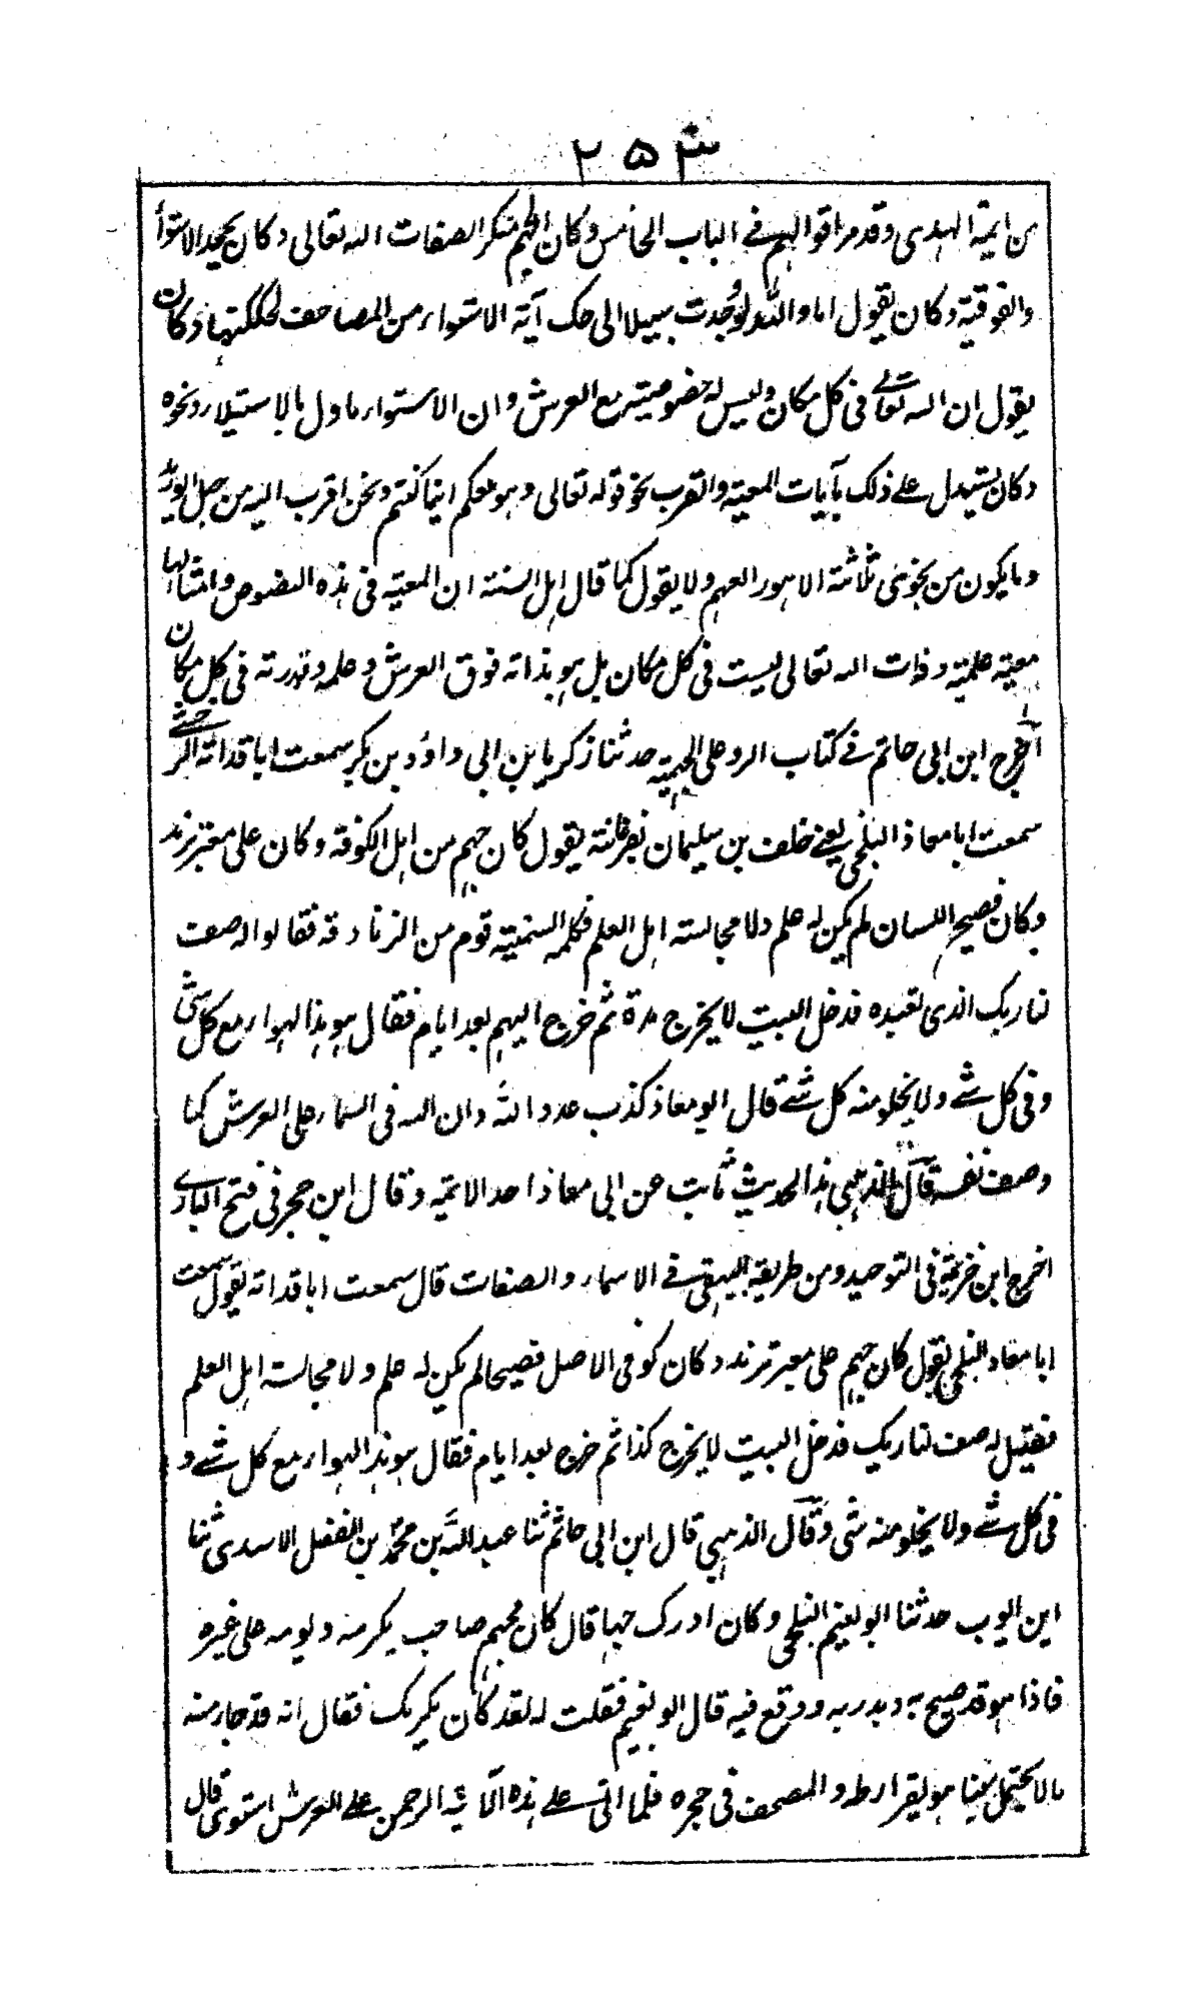 ٢٥٣
من ايمة الهدى وقد مر اقوالهم في الباب الخامس وكان الجهم منكر الصفات الله تعالى وكان يجحد الاستواء
والفوقية وكان يقول اما والله لو وُجدت سبيلا الى حك آية الاستواء من المصاحف لحككتها وكان
يقول ان الله تعالى فى كل مكان وليس له خصوصية مع العرش وان الاستواء ماول بالاستيلاء ونحوه
وكان يستدل على ذلك بآيات المعية والقرب نحو قوله تعالى وهو معكم اينما كنتم ونحن اقرب اليه من حبل الوريد
وما يكون من نجوى ثلاثة الا هو رابعهم ولا يقول كما قال اهل السنة ان المعية فى هذه النصوص وامثالها
معية علمية وذات الله تعالى ليست فى كل مكان بل هو بذاته فوق العرش وعلمه وقدرته فى كل مكان
اخرج ابن ابى حاتم فى كتاب الرد على الجهمية حدثنا زكريا بن ابى داؤد بن بكر سمعت ابا قدامة السرخسى
سمعت ابا معاذ البلخى يعنى خلف بن سليمان بفرغانة يقول كان جهم من اهل الكوفة وكان على معبر ترمذ
وكان فصيح اللسان لم يكن له علم ولا مجالسة اهل العلم فكلمه السمنية قوم من الزنادقة فقالوا له صف
لنا ربك الذى تعبده فدخل البيت لا يخرج مدة ثم خرج اليهم بعد ايام فقال هو هذا الهواء مع كل شى
وفى كل شے ولا يخلو منه كل شے قال ابو معاذ كذب عدو الله وان الله فى السماء على العرش كما
وصف نفسه قال الذهبى هذا الحديث ثابت عن ابى معاذ احد الائمة وقال ابن حجر فى فتح البارى
اخرج ابن خزيمة فى التوحيد ومن طريقه البيهقى فى الاسماء والصفات قال سمعت ابا قدامة يقول سمعت
ابا معاذ البلخى يقول كان جهم على معبر ترمذ وكان كوفى الاصل فصيحا لم يكن له علم ولا مجالسة اهل العلم
فقيل له صف لنا ربك فدخل البيت لا يخرج كذا ثم خرج بعد ايام فقال هو هذا الهواء مع كل شے و
فى كل شے ولا يخلو منه شى وقال الذهبى قال ابن ابى حاتم ثنا عبد الله بن محمد بن الفضل الاسدى ثنا
ابن ايوب حدثنا ابو نعيم البلخى وكان ادرك جهما قال كان لجهم صاحب يكرمه ويومه على غيره
فاذا هو قد صيح به وبدر به ووقع فيه قال ابو نعيم فقلت له لقد كان يكرمك فقال انه قد جاء منه
ما لا يحتمل بينا هو يقرا طه والمصحف فى حجره فلما اتى على هذه الآية الرحمن على العرش استوى قال